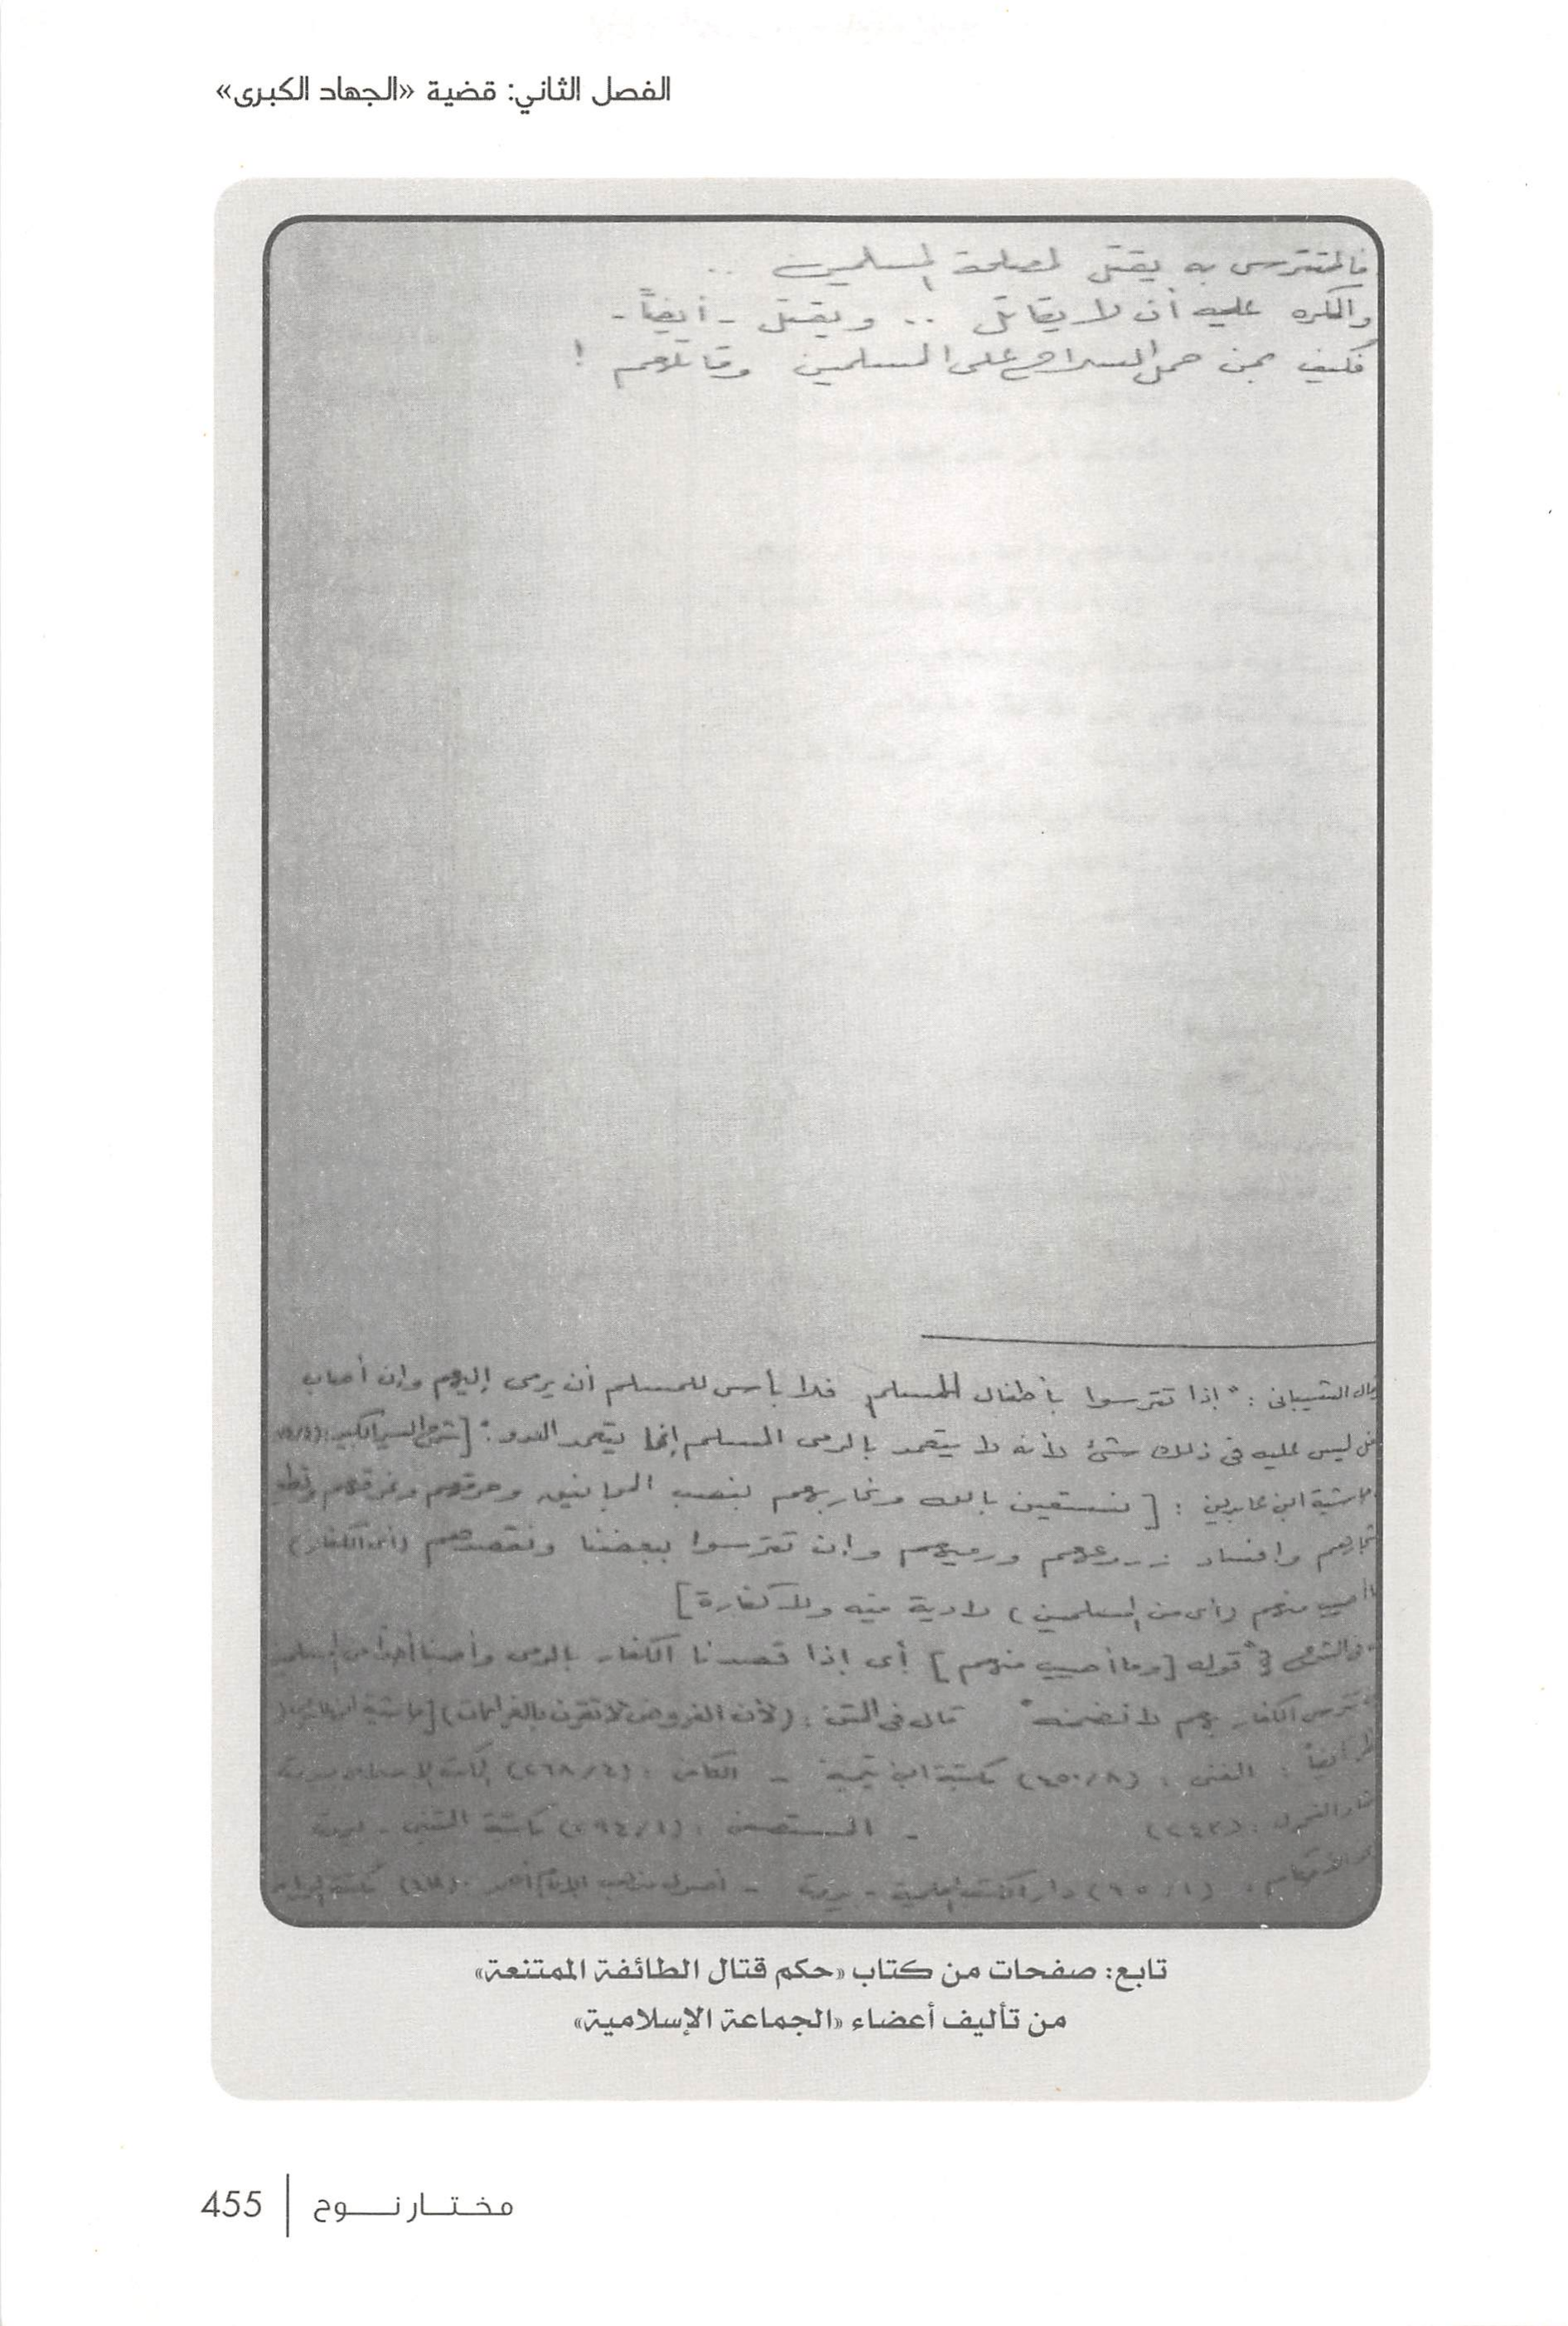 الفصل الثاني: قضية «الجهاد الكبرى»
فالمتترس به يقتل لمصلحة المسلمين ..
والمكره عليه أن لا يقاتل .. ويقتل - أيضاً -
فكيف بمن حمل السلاح على المسلمين وقاتلهم !
قال الشيبانى : " إذا تترسوا بأطفال المسلم فلا بأس للمسلم أن يرمى إليهم وإن أصاب
ليس عليه فى ذلك شئ لأنه لا يتعمد بالرمى المسلم إنما يتعمد العدو ." [ شرح السير الكبير
حاشية ابن عابدين : [ نستعين بالله ونحاربهم بنصب المجانيق وحرقهم وغرقهم وقطع
أشجارهم وإفساد زروعهم ورميهم وإن تترسوا ببعضنا ونقصدهم (أى الكفار)
ما أصيب منهم (أى من المسلمين) لا دية فيه ولا كفارة ]
قوله [ وما أصيب منهم ] أى إذا قصدنا الكفار بالرمى وأصبنا أحداً من المسلمين
تترس الكفار بهم لا نضمنه" قال فى المتن : (لأن الفروض لا تقرن بالغرامات) [ حاشية
أيضاً : المغنى : (٤٥٠/٨) مكتبة ابن تيمية - الكافى : (٢٦٨/٤)
(٢٤٣) - المستصفى : (٢٩٤/١) مكتبة المثنى - بيروت
دار الكتب العلمية - بيروت - أصول مذهب الإمام أحمد
تابع: صفحات من كتاب «حكم قتال الطائفة الممتنعة»
من تأليف أعضاء «الجماعة الإسلامية»
مختار نوح | 455